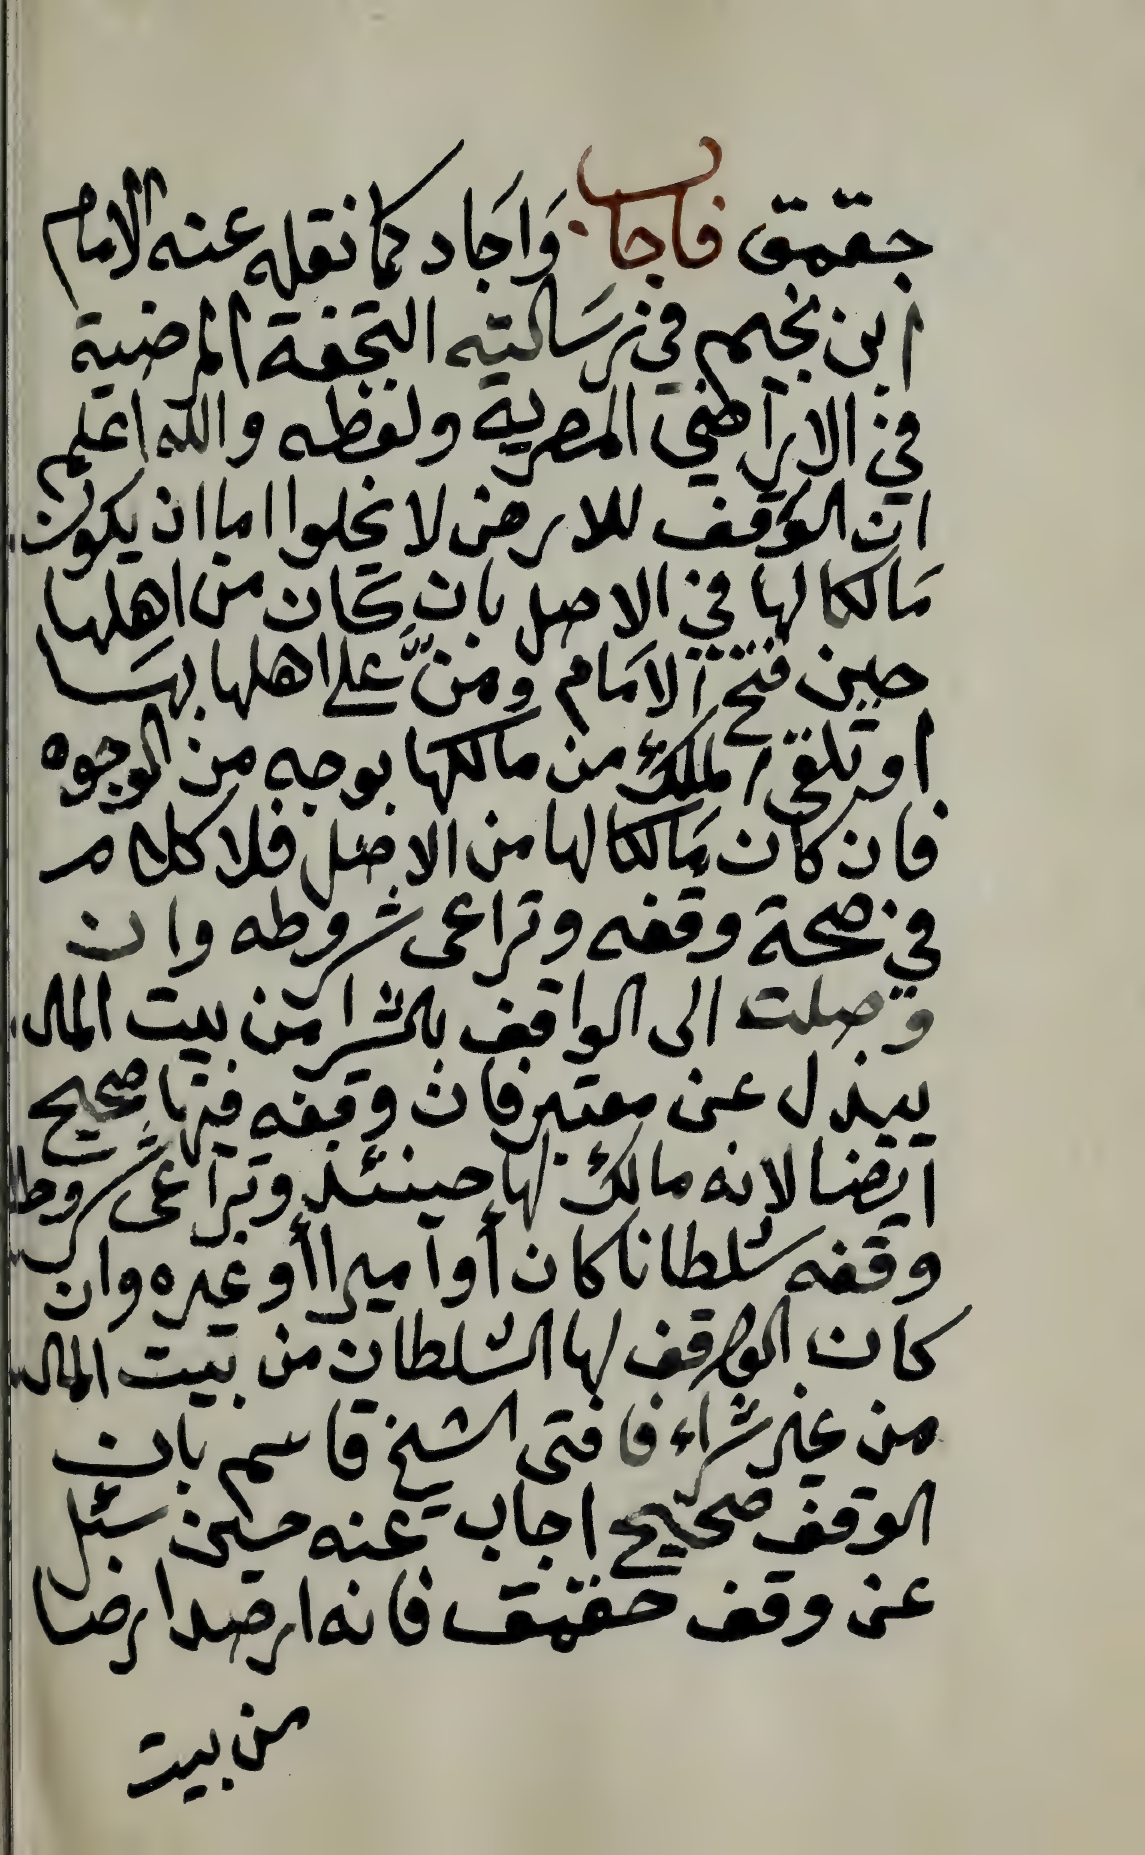 جقمق فاجاب وَاجَاد كما نقله عنه الامام
ابن نجيم في رسَالته التحفة المرضية
في الاراضي المصرية ولفظه والله اعلم
ان الوقف للارض لا يخلوا اما ان يكون
مَالكا لها في الاصل بان كان من اهلها
حين فتح الامَام ومنَّ على اهلها بهَا
او تلقى الملك من مالكها بوجه من الوجوه
فان كان مَالكا لها من الاصل فلا كلام
في صحة وقفه وتراعى شروطه وان
وصلت الى الواقف بالشرا من بيت المال
ببذل عن معتبر فان وقفه فيها صحيح
ايضا لانه مالك لها حينئذ وتراعى شروط
وقفه سلطانا كان أو اميرا أو غيره وان
كان الواقف لها السلطان من بيت المال
من غير شراء فافتى الشيخ قاسم بان
الوقف صحيح اجاب عنه حين سئل
عن وقف جقمق فانه ارصد ارضا
من بيت